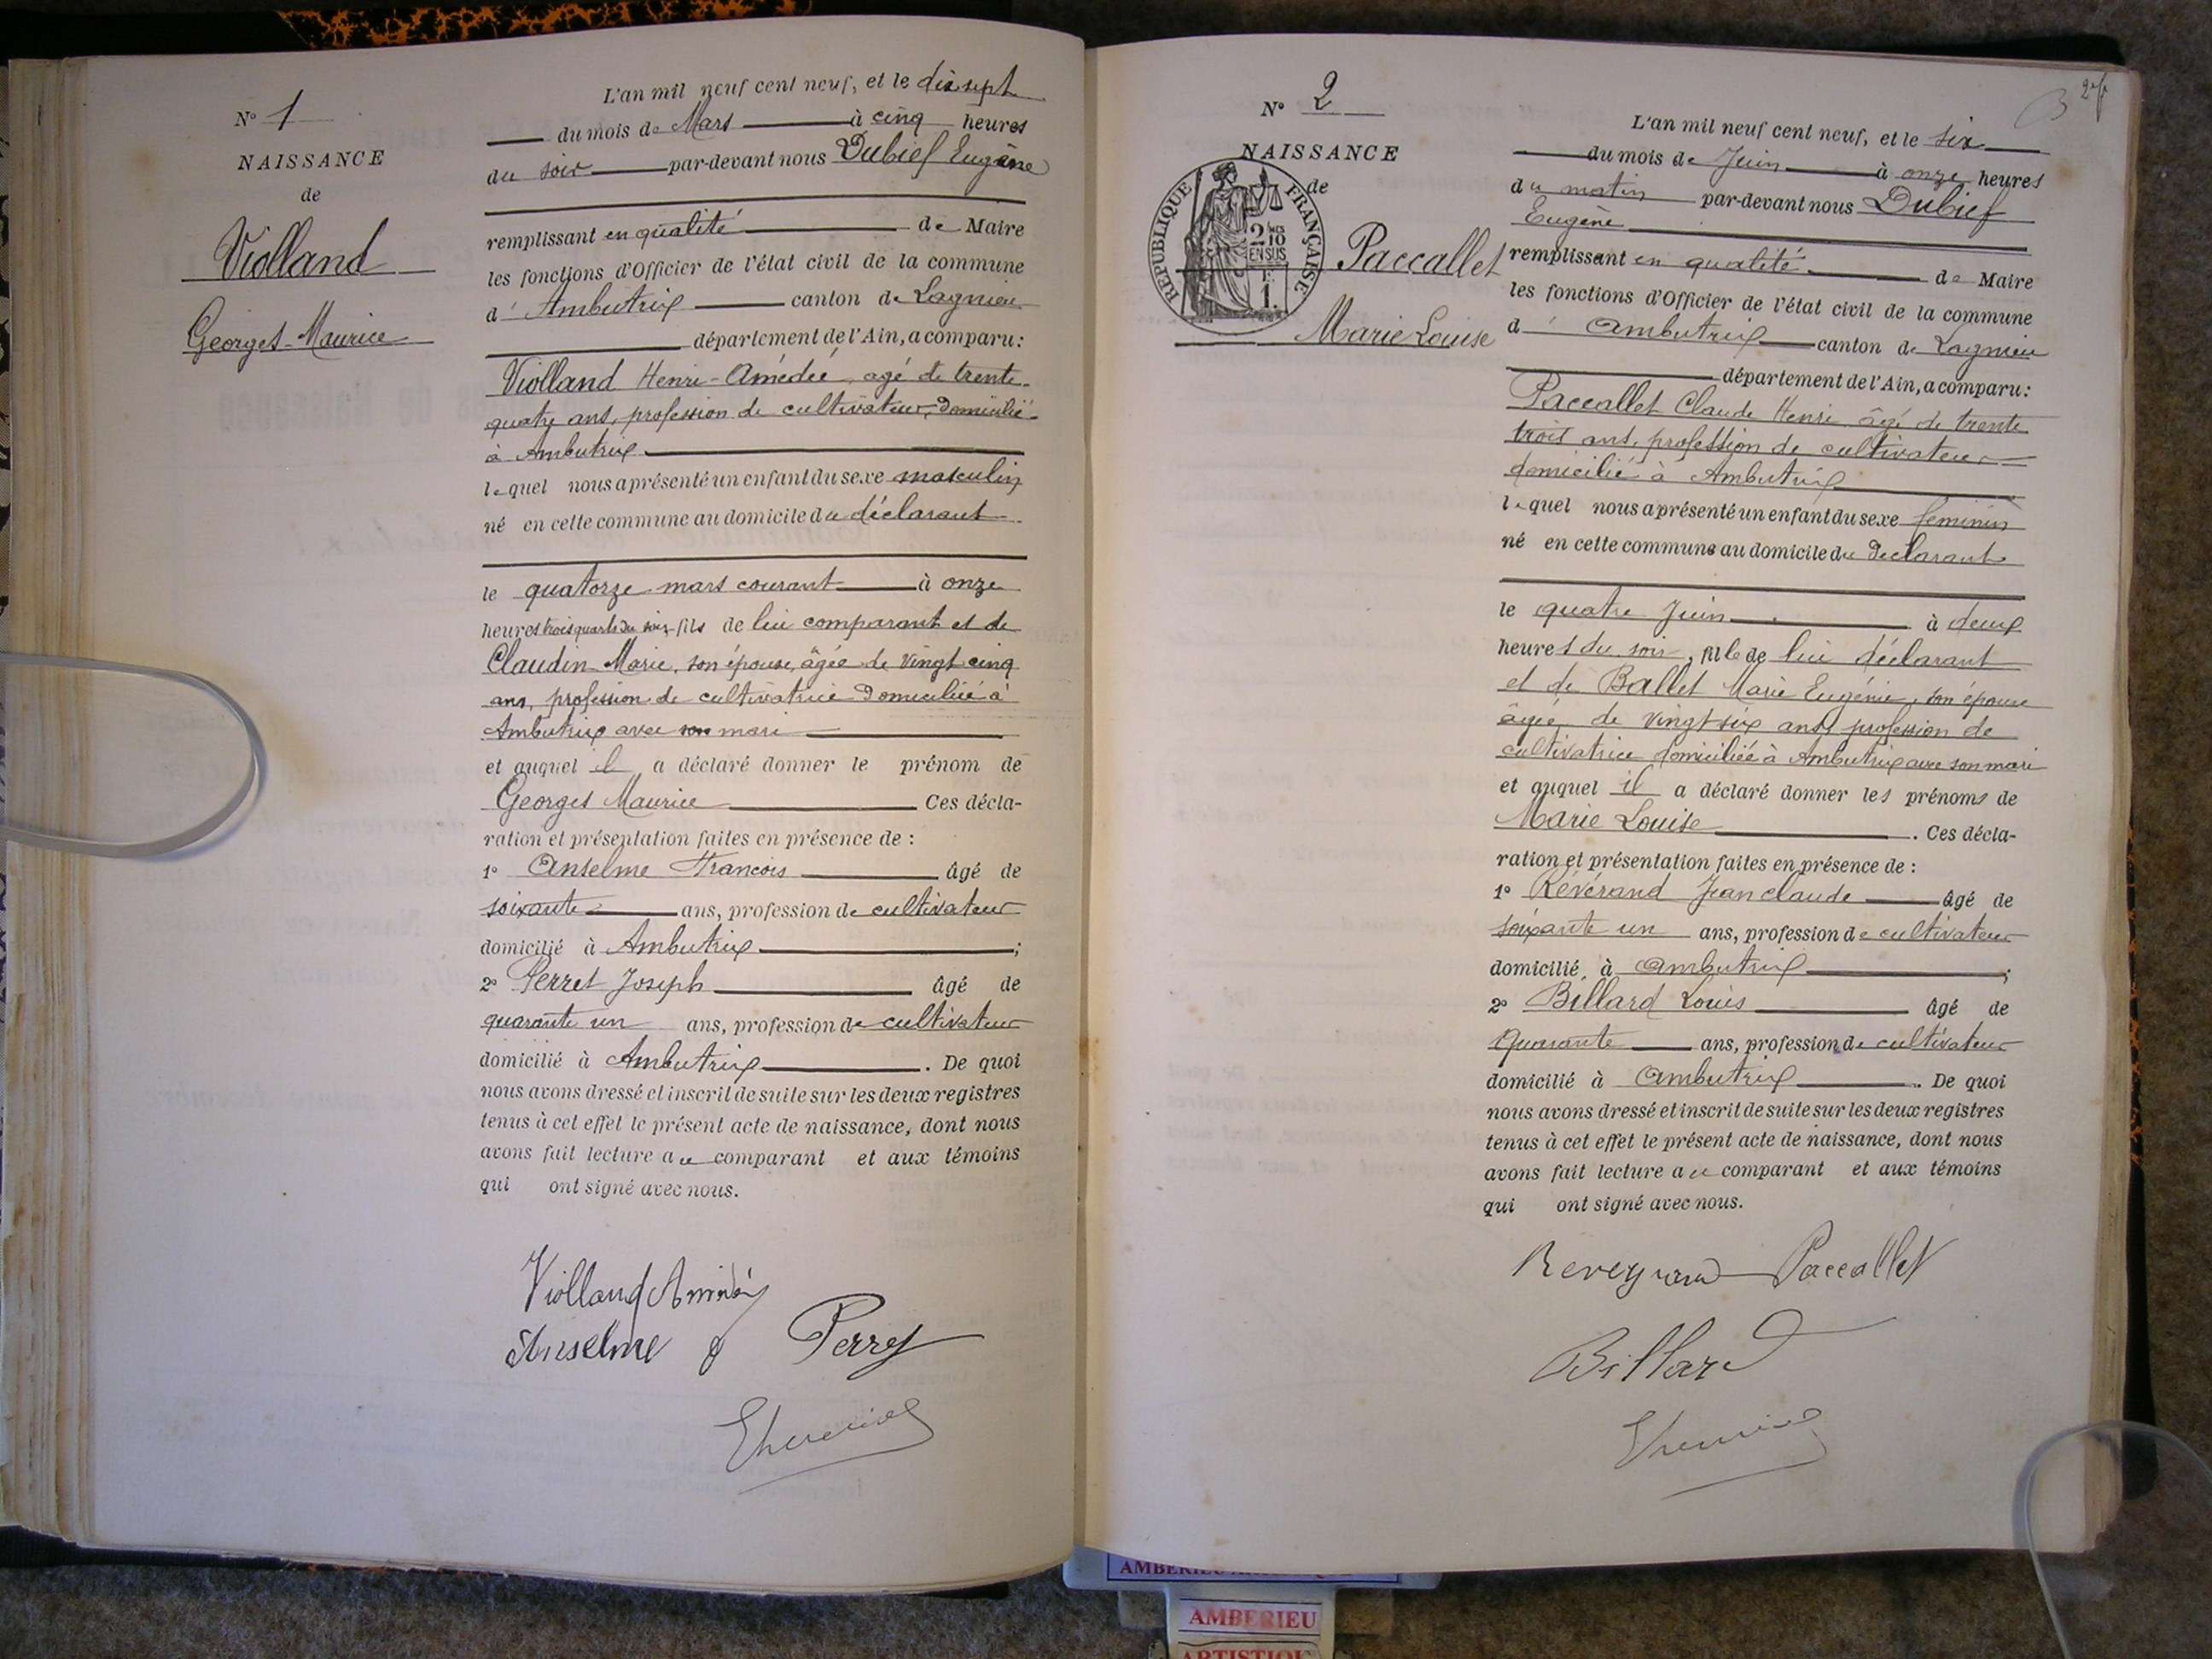 L'an mil neuf cent neuf, et le dix sept
N° 1
du mois de Mars à cinq heures
NAISSANCE
du soir par-devant nous Dubief Eugène
de
remplissant en qualité de Maire
Violland
les fonctions d'Officier de l'état civil de la commune
d' Ambutrix canton de Lagnieu
Georges-Maurice
département de l'Ain, a comparu:
Violland Henri-Amédée, agé de trente-
quatre ans, profession de cultivateur, domicilié
à Ambutrix
lequel nous a présenté un enfant du sexe masculin
né en cette commune au domicile du déclarant
le quatorze mars courant à onze
heures trois quarts du soir, fils de lui comparant et de
Claudin Marie, son épouse, âgée de vingt cinq
ans, profession de cultivatrice domiciliée à
Ambutrix avec son mari
et auquel il a déclaré donner le prénom de
Georges Maurice Ces décla-
ration et présentation faites en présence de :
1° Anselme Francois âgé de
soixante ans, profession de cultivateur
domicilié à Ambutrix ;
2° Perret Joseph âgé de
quarante un ans, profession de cultivateur
domicilié à Ambutrix . De quoi
nous avons dressé et inscrit de suite sur les deux registres
tenus à cet effet le présent acte de naissance, dont nous
avons fait lecture au comparant et aux témoins
qui ont signé avec nous.
Violland Amédéé
Anselme f Perret
2
N° 2
L'an mil neuf cent neuf, et le six
NAISSANCE
du mois de Juin à onze heures
de
du matin par-devant nous Dubief
Eugène
RÉPUBLIQUE FRANÇAISE
2 10
EN SUS
F.
1.
Paccallet
remplissant en qualité de Maire
les fonctions d'Officier de l'état civil de la commune
Marie Louise
d' Ambutrix canton de Lagnieu
département de l'Ain, a comparu:
Paccallet Claude Henri âgé de trente
trois ans, profession de cultivateur
domicilié à Ambutrix
lequel nous a présenté un enfant du sexe feminin
né en cette commune au domicile du declarant
le quatre Juin à deux
heures du soir, fille de lui déclarant
et de Ballet Marie Eugénie, son épouse
âgée de vingt six ans, profession de
cultivatrice domiciliée à Ambutrix avec son mari
et auquel il a déclaré donner les prénoms de
Marie Louise . Ces décla-
ration et présentation faites en présence de :
1° Révérand Jean claude âgé de
soixante un ans, profession de cultivateur
domicilié à Ambutrix ;
2° Billard Louis âgé de
Quarante ans, profession de cultivateur
domicilié à Ambutrix . De quoi
nous avons dressé et inscrit de suite sur les deux registres
tenus à cet effet le présent acte de naissance, dont nous
avons fait lecture au comparant et aux témoins
qui ont signé avec nous.
Reveyrand Paccallet
Billard
AMBERIEU
AMBERIEU